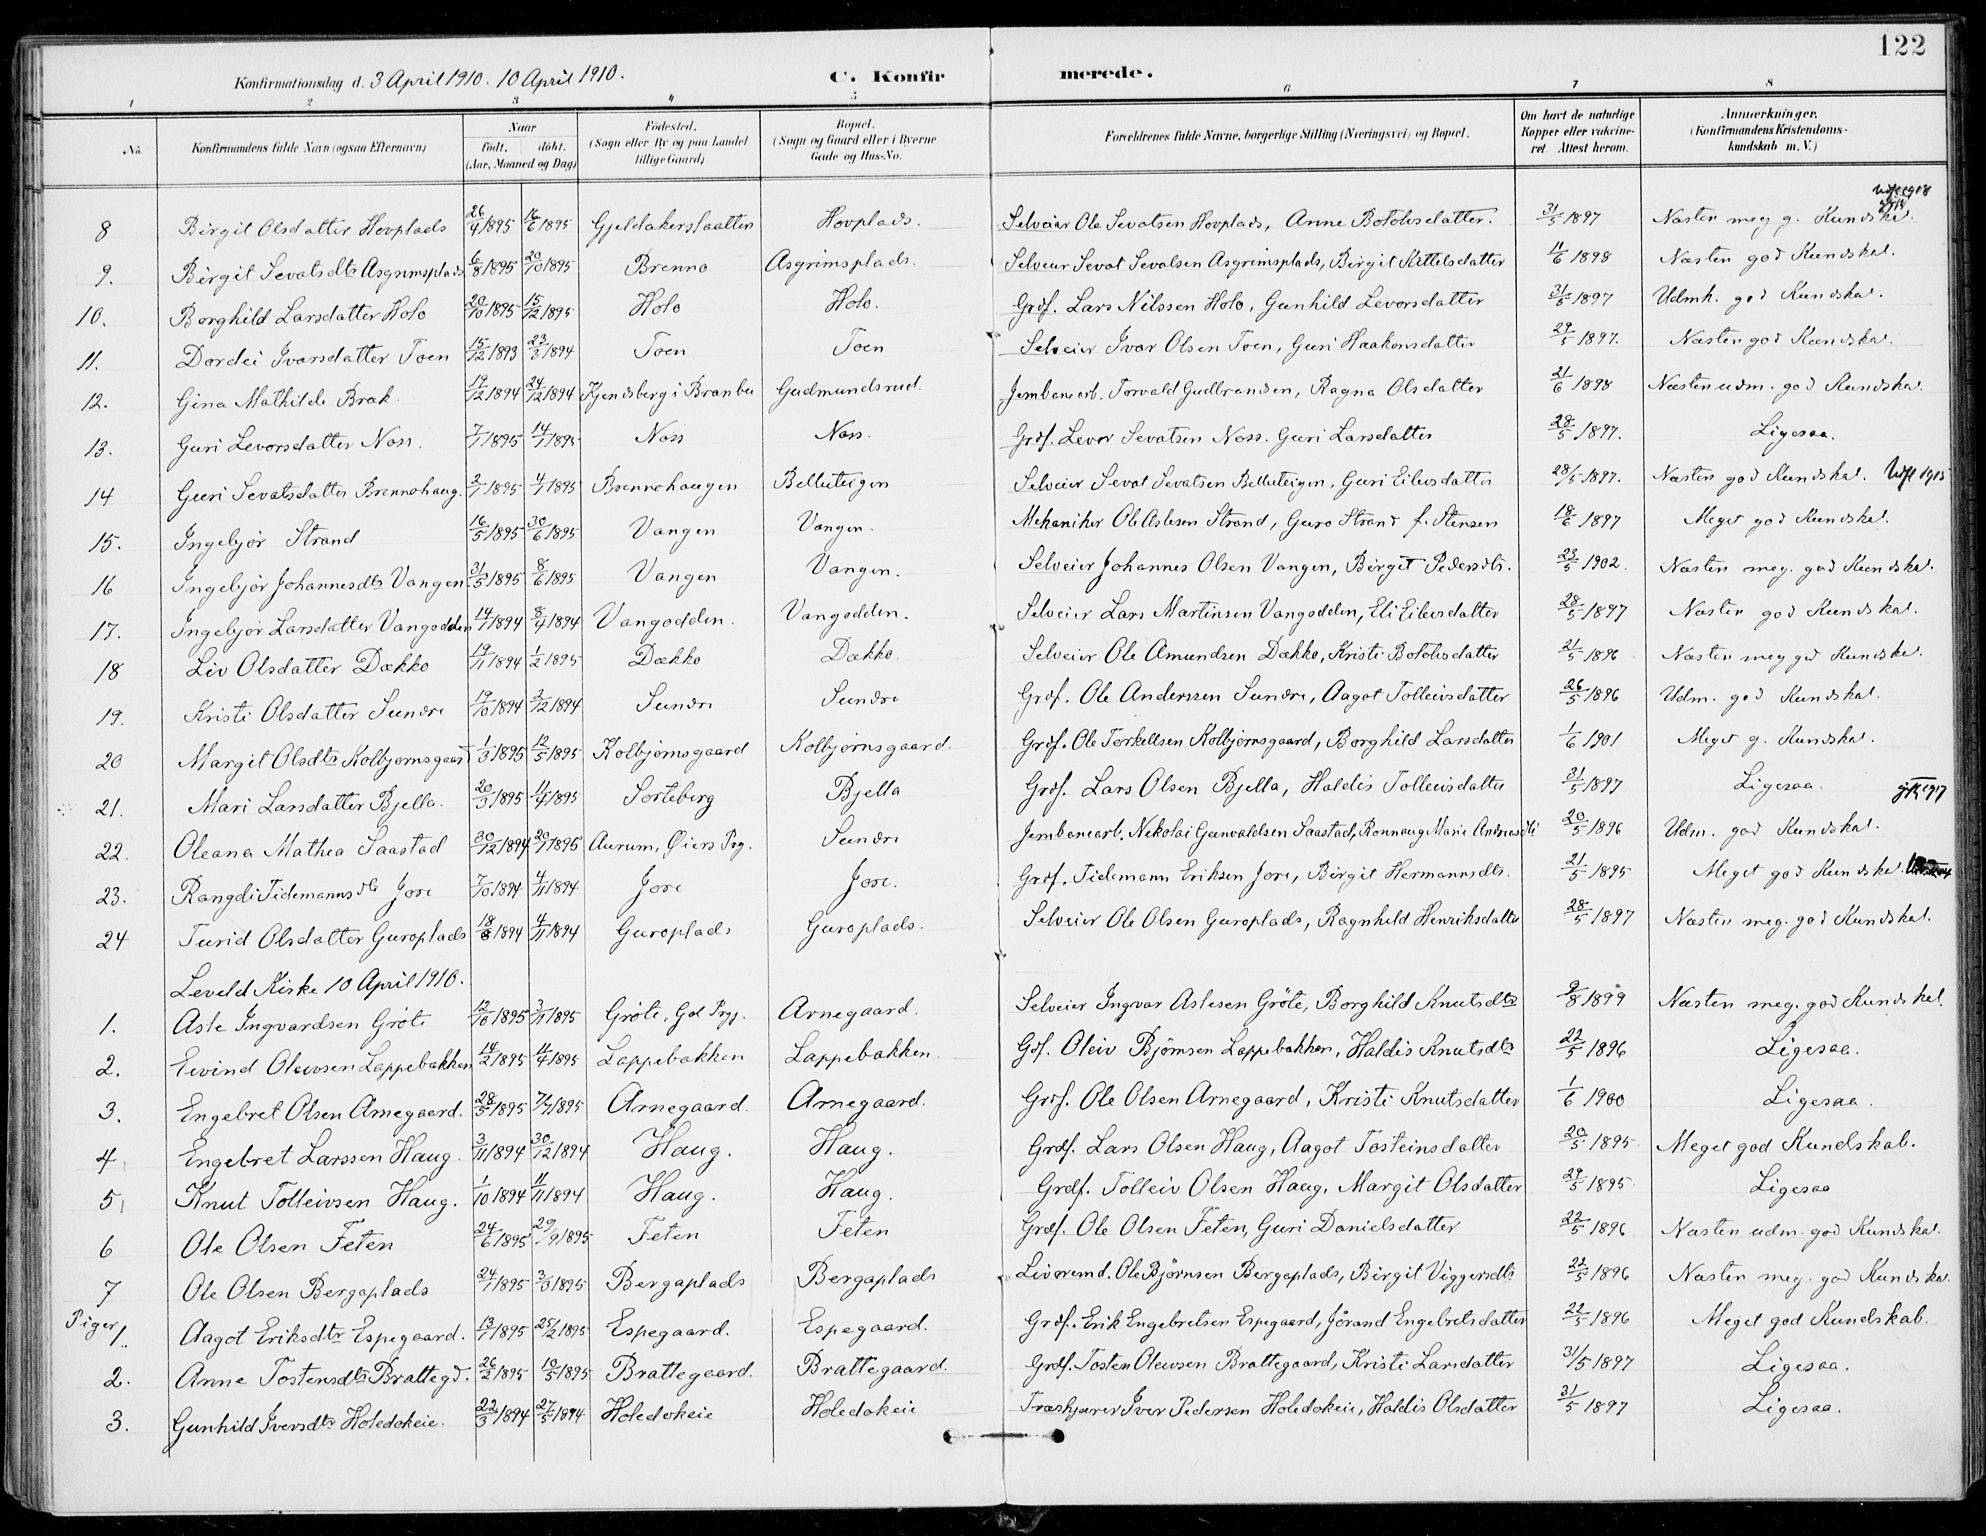 122
Konfirmationsdag d. 3 April 1910. 10 April 1910. C. Konfirmerede.
1 2 3 4 5 6 7 8
No. Konfirmandens fulde Navn (ogsaa Efternavn) Naar født. døbt. (Aar, Maaned og Dag) Fødested. (Sogn eller By og paa Landet tillige Gaard) Bopæl. (Sogn og Gaard eller i Byerne Gade og Hus-No. Forældrenes fulde Navne, borgerlige Stilling (Næringsvei) og Bopæl. Om havt de naturlige Kopper eller vakcineret. Attest herom. Anmærkninger. (Konfirmandens Kristendomskundskab m. V.)
8 Birgit Olsdatter Hovplads 26/4 1895 16/6 1895 Gjeldakerslaatten Hovplads. Selveier Ole Sevatsen Hovplads, Anne Botolvsdatter. 31/5 1897 Næsten meg g. Kundskab.
9. Birgit Sevatsdtr Asgrimsplads 6/8 1895 20/10 1895 Brenno Asgrimsplads. Selveier Sevat Sevatsen Asgrimsplads, Birgit Kittelsdatter 11/6 1898 Næsten god Kundskab.
10. Borghild Larsdatter Holo 20/10 1895 15/12 1895 Holo Holo. Grdf. Lars Nilssen Holo, Gunhild Levorsdatter 31/5 1897 Udmk. god Kundskab.
11. Dordei Ivarsdatter Toen 15/12 1893 23/3 1894 Toen Toen Selveier Ivar Olsen Toen, Guri Haakonsdatter 29/5 1897. Næsten god Kundskab.
12. Gina Mathilde Brak. 19/12 1894 24/12 1894 Kjendsberg i Branbu Gudmundsrud. Jernbanearb. Torvald Gudbrandsen, Ragna Olsdatter 21/6 1898 Næsten udm. god Kundskab.
13. Guri Levorsdatter Noss. 7/1 1895 14/1 1895 Noss Noss. Grdf. Levor Sevatsen Noss. Guri Larsdatter 28/5 1897. Ligesaa.
14 Guri Sevatsdatter Brennohaug. 3/1 1895 4/1 1895 Brennohaugen Belluteigen Selveier Sevat Sevatsen Belluteigen, Guri Eilivsdatter 28/5 1897. Næsten god Kundskab. Utfl 1915
15. Ingebjør Strand 16/5 1895 30/6 1895 Vangen Vangen. Mekaniker Ole Aslesen Strand, Guro Strand f. Stensen 18/6 1897 Meget god Kundskab.
16 Ingebjør Johannesdtr Vangen. 31/5 1895 8/6 1895 Vangen Vangen. Selveier Johannes Olsen Vangen, Birgit Pedersdtr. 23/5 1902. Næsten meg. god Kundskab.
17. Ingebjør Larsdatter Vangodden 14/1 1894 8/4 1894 Vangodden. Vangodden. Selveier Lars Martinsen Vangodden, Eli Eilivsdatter 28/5 1897 Næsten god Kundskab.
18 Liv Olsdatter Dækko 19/11 1894 1/2 1895 Dækko Dækko. Selveier Ole Amundsen Dækko, Kristi Botolvsdatter 21/5 1896 Næsten meg gd Kundskab.
19. Kristi Olsdatter Sundre 19/10 1894 2/12 1894 Sundre Sundre Grdf. Ole Anderssen Sundre, Aagot Tolleivsdatter 26/5 1896 Udm. god Kundskab.
20 Margit Olsdtr Kolbjørnsgaard 1/3 1895 12/5 1895 Kolbjørnsgaard Kolbjørnsgaard. Grdf. Ole Torkellsen Kolbjørnsgaard, Borghild Larsdatter 1/6 1901 Meget g. Kundskab.
21. Mari Larsdatter Bjella. 20/3 1895 11/4 1895 Sorteberg Bjella Grdf. Lars Olsen Bjella, Haldis Tolleivsdatter 31/5 1897 Ligesaa.
22. Oleana Mathea Saastad 30/12 1894 20/1 1895 Aurum, Øiers Prg. Sundre Jernbanearb. Nikolai Gunvaldsen Saastad, Rønnaug Marie Andreasdtr 20/5 1896 Udm. god Kundskab.
23. Rangdi Tidemannsdtr Jore 7/10 1894 4/11 1894 Jore Jore. Grdf. Tidemann Eriksen Jore, Birgit Hermannsdtr. 21/5 1895 Meget god Kundskab.
24 Turid Olsdatter Guroplads 18/8 1894 4/11 1894 Guroplads Guroplads. Selveier Ole Olsen Guroplads, Ragnhild Henriksdatter 28/5 1897 Næsten meg. god Kundskab.
Leveld Kirke 10 April 1910.
1. Asle Ingvardsen Grøte 12/10 1895 3/11 1895 Grøte, Gol Prgj. Arnegaard. Selveier Ingvar Aslesen Grøte, Borghild Knutsdtr 9/8 1899 Næsten meg. god Kundskab.
2. Eivind Oleivsen Lappebakken 14/2 1895 11/4 1895 Lappebakken Lappebakken. Gdf. Oleiv Bjørnsen Lappebakken, Haldis Knutsdtr 22/5 1896 Ligesaa.
3. Engebret Olsen Arnegaard. 28/5 1895 7/7 1895 Arnegaard. Arnegaard. Grdf. Ole Olsen Arnegaard, Kristi Knutsdatter 1/6 1900 Ligesaa.
4 Engebret Larssen Haug. 3/11 1894 30/12 1894 Haug. Haug. Grdf. Lars Olsen Haug, Aagot Tosteinsdatter 20/5 1895. Meget god Kundskab.
5 Knut Tolleivsen Haug. 1/10 1894 11/11 1894 Haug. Haug. Grdf. Tolleiv Olsen Haug, Margit Olsdatter 29/5 1895. Ligesaa
6 Ole Olsen Feten 24/6 1895 29/9 1895 Feten Feten Grdf. Ole Olsen Feten, Guri Danielsdatter 22/5 1896 Næsten udm. god Kundskab.
7 Ole Olsen Bergaplads 24/1 1895 3/3 1895 Bergaplads Bergaplads Livøremd. Ole Bjørnsen Bergaplads, Birgit Viggersdtr 22/5 1896 Næsten meg. god Kundskab.
Piger
1. Aagot Eriksdtr Espegaard. 13/1 1895 25/2 1895 Espegaard. Espegaard. Grdf. Erik Engebretsen Espegaard, Jørand Engebretsdatter 22/5 1896 Meget god Kundskab.
2. Anne Tostensdtr Brattegd. 26/2 1895 10/5 1895 Brattegaard. Brattegaard. Grdf. Tosten Oleivsen Brattegaard, Kristi Larsdatter 31/5 1897 Ligesaa.
3. Gunhild Iversdtr Holedokeie. 22/3 1894 27/5 1894 Holedokeie Holedokeie Træskjærer Iver Pedersen Holedokeie, Haldis Olsdatter 31/5 1897 Ligesaa.